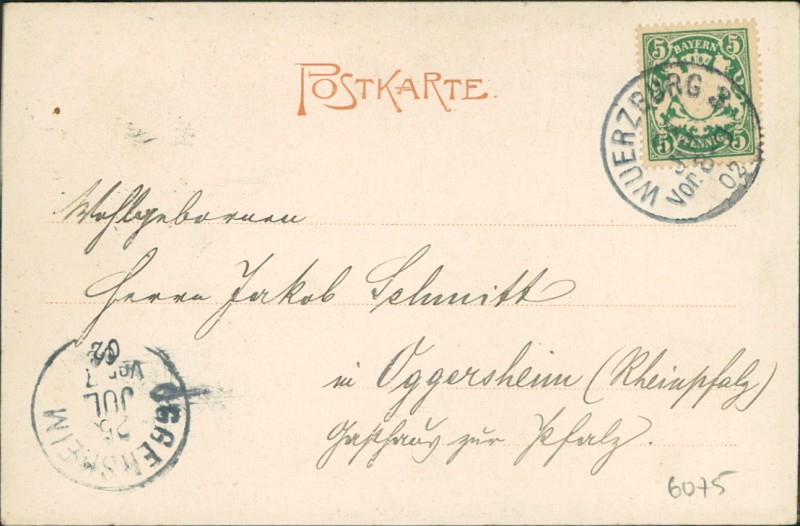 POSTKARTE.
5 BAYERN 5
5 PFENNIG 5
WUERZBURG 3
Vor. 8
02
Wohlgebornen
Herrn Jakob Schmitt
in Oggersheim (Rheinpfalz)
Gasthaus zur Pfalz.
OGGERSHEIM
25
JUL
Vor. 7
02
6075